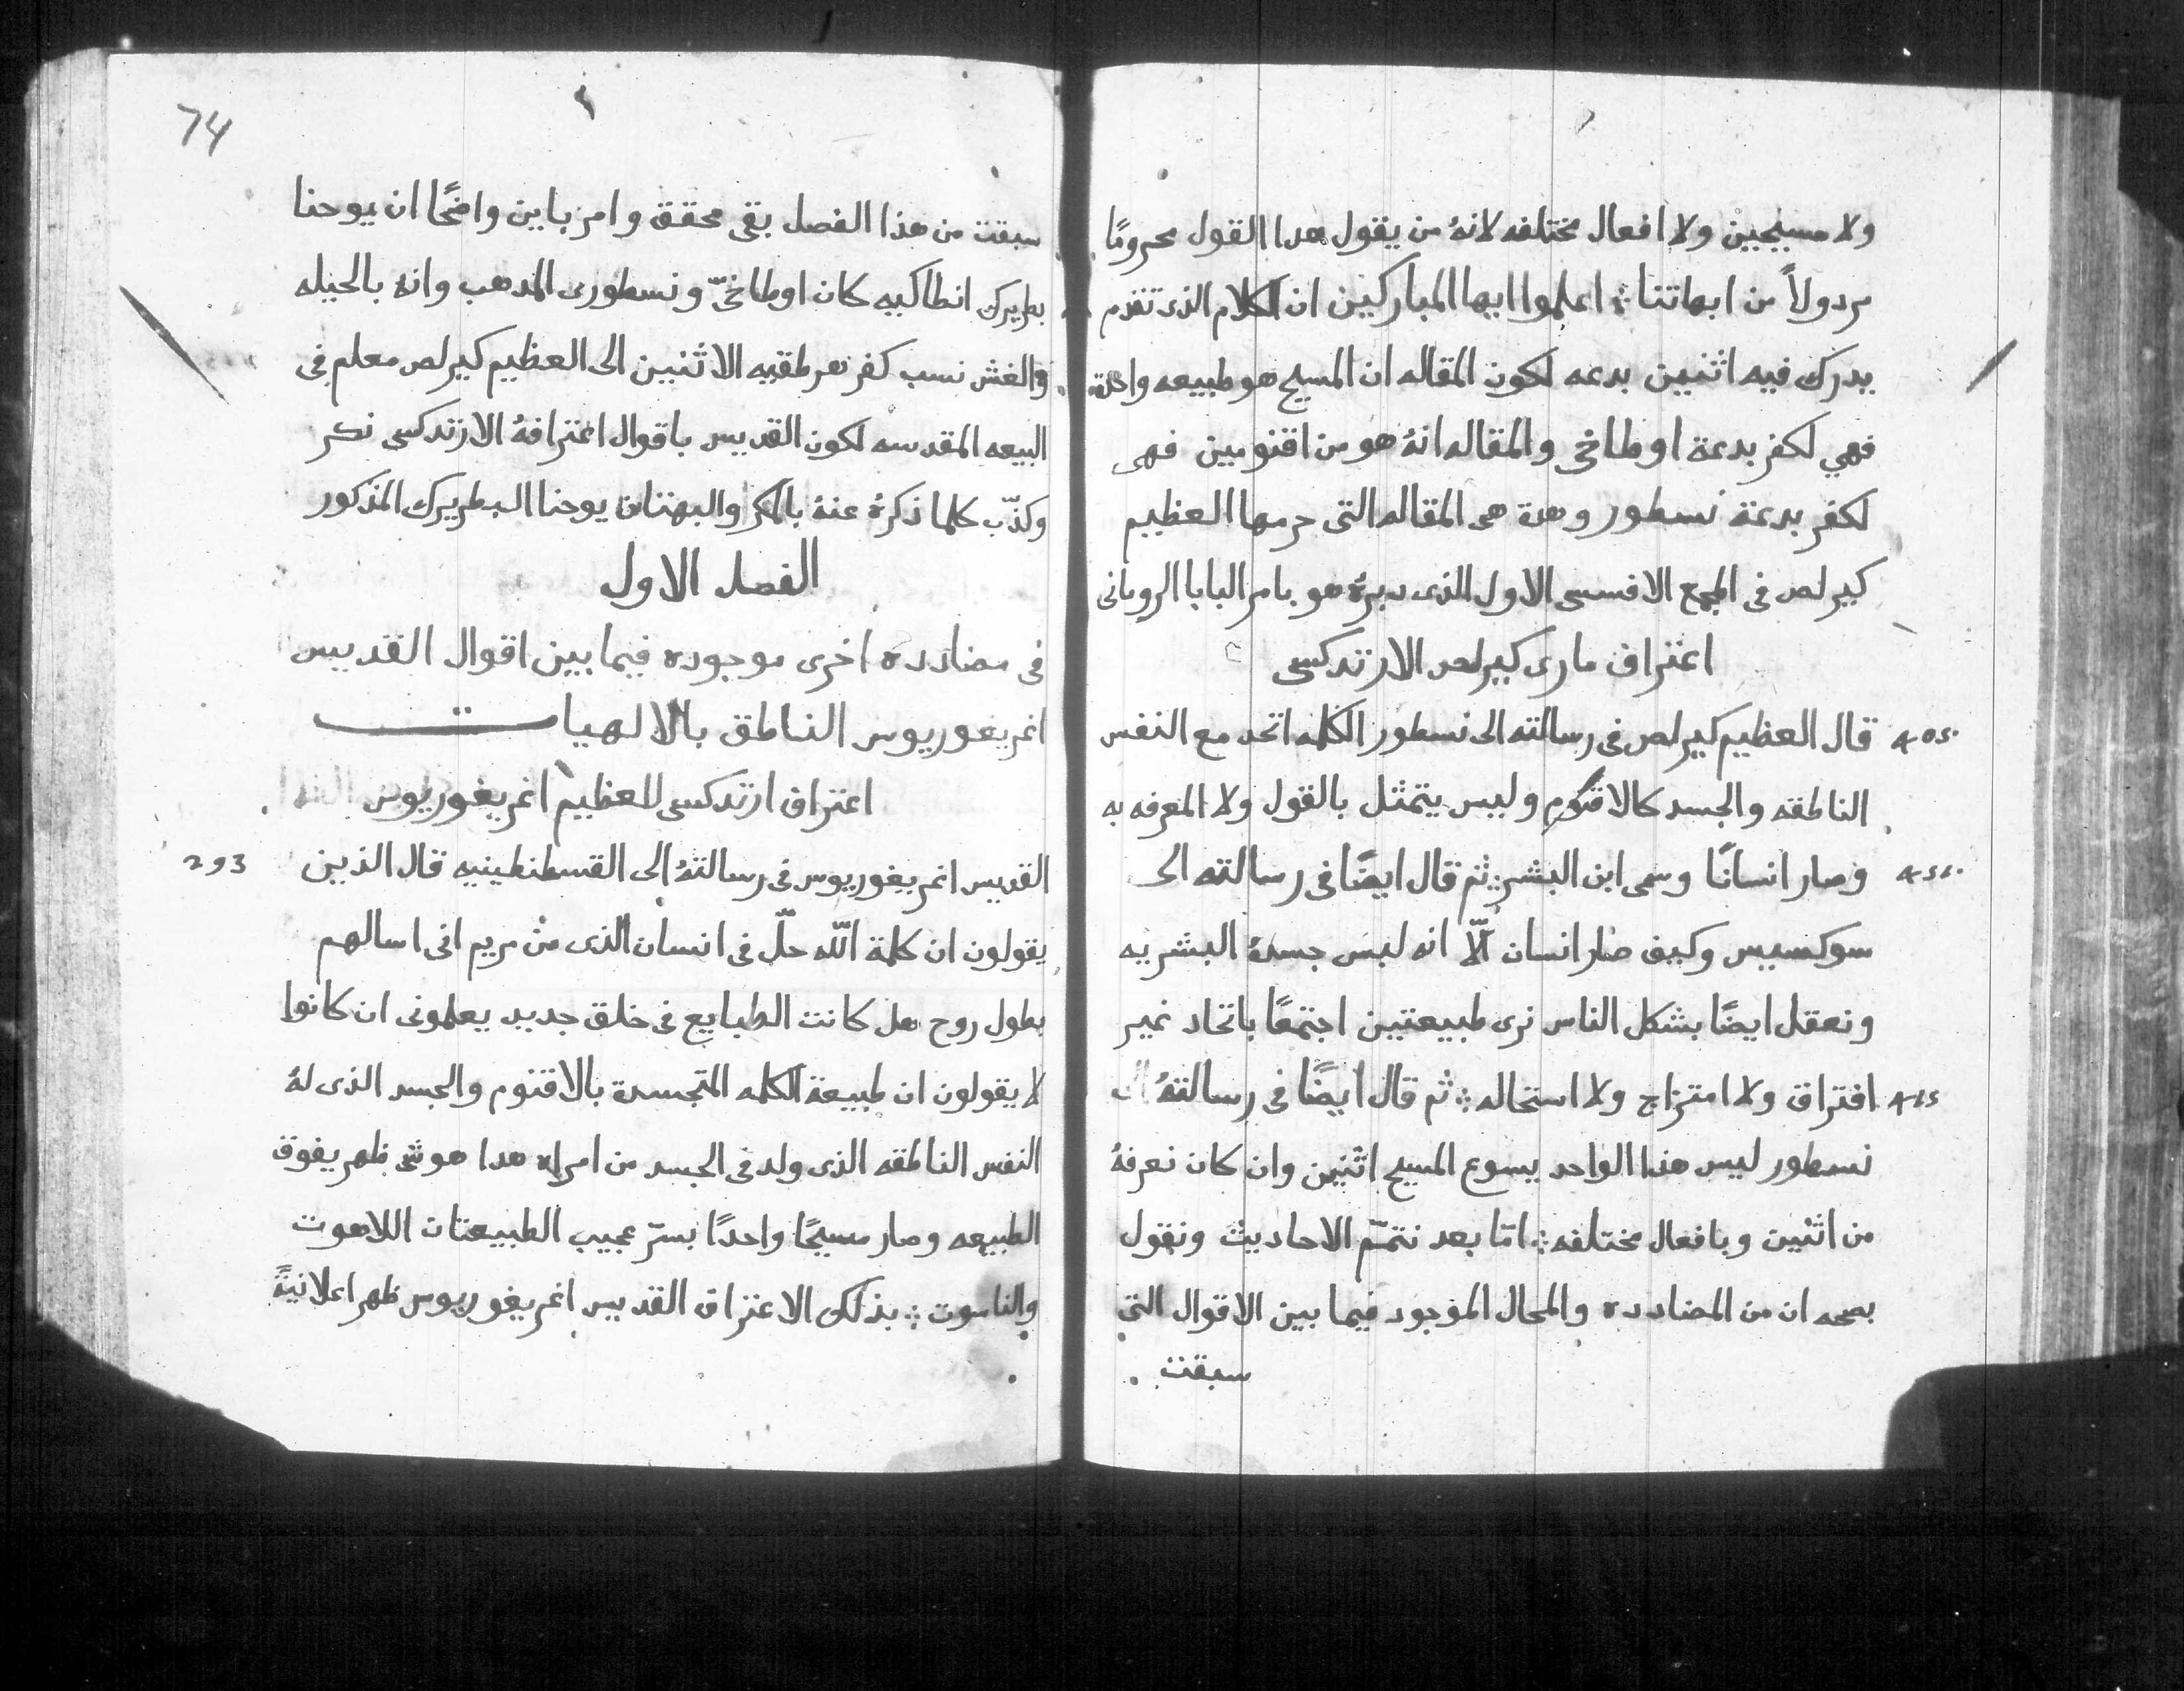 ولا مسيحيين ولا افعال مختلفه لانهُ من يقول هدا القول محرومًا
مردولاً من ابهاتنا : اعلموا ايها المباركين ان الكلام الذى تقدم
يدرك فيه اثنين بدعه لكون المقاله ان المسيح هو طبيعه واحدة
فهي لكفر بدعة اوطاخى والمقاله انهُ هو من اقنوميين فهى
لكفر بدعة نسطور وهدة هى المقاله التى حرمها العظيم
كيرلص فى المجمع الافسسى الاول الذى دبرهُ هو بامر البابا الرومانى
اعتراف مارى كيرلص الارتدكسى
405. قال العظيم كيرلص فى رسالته الى نسطور الكلمه اتحد مع النفس
الناطقه والجسد كالاقنوم وليس يتمثل بالقول ولا المعرفه به
451. وصار انسانًا وسمى ابن البشر : ثم قال ايضًا فى رسالته الى
سوكسيس وكيف صار انسان الّا انه لبس جسدهُ البشريه
ونعقل ايضًا بشكل الناس نرى طبيعتين اجتمعًا باتحاد غير
415 افتراق ولا امتزاج ولا استحاله : ثم قال ايضًا فى رسالتهُ
نسطور ليس هذا الواحد يسوع المسيح اثنين وان كان نعرفهُ
من اثنين وبافعال مختلفه : امّا بعد نتمّم الاحاديث ونقول
بصحه ان من المضادده والمحال الموجود فيما بين الاقوال التى
سبقت
74
سبقت من هذا الفصل بقى محقق وامر باين واضحًا ان يوحنا
بطريرك انطاكيه كان اوطاخىّ ونسطورى المدهب وانهُ بالحيله
والغش نسب كفر هرطقيه الاثنين الى العظيم كيرلص معلم فى
البيعه المقدسه لكون القديس باقوال اعترافهُ الارتدكسى نكر
وكذّب كلما ذكرهُ عنهُ بالمكر والبهتنان يوحنا البطريرك المذكور
الفصل الاول
فى مضادده اخرى موجوده فيما بين اقوال القديس
اغريغوريوس الناطق بالالهيات
اعتراف ارتدكسى للعظيم اغريغوريوس
293 القديس اغريغوريوس فى رسالتهُ الى القسطنطينيه قال الذين
يقولون ان كلمة اللّه حلّ فى انسان الذى من مريم انى اسالهم
بطول روح هل كانت الطبايع فى خلق جديد يعلمونى ان كانوا
لا يقولون ان طبيعة الكلمه المتجسدة بالاقنوم والجسد الذى لهُ
النفس الناطقه الذى ولد فى الجسد من امراه هدا هو شى ظهر يفوق
الطبيعه وصار مسيحًا واحدًا بسرّ عجيب الطبيعتان اللاهوت
والناسوت : بذلك الاعتراف القديس اغريغوريوس ظهر اعلانيةً